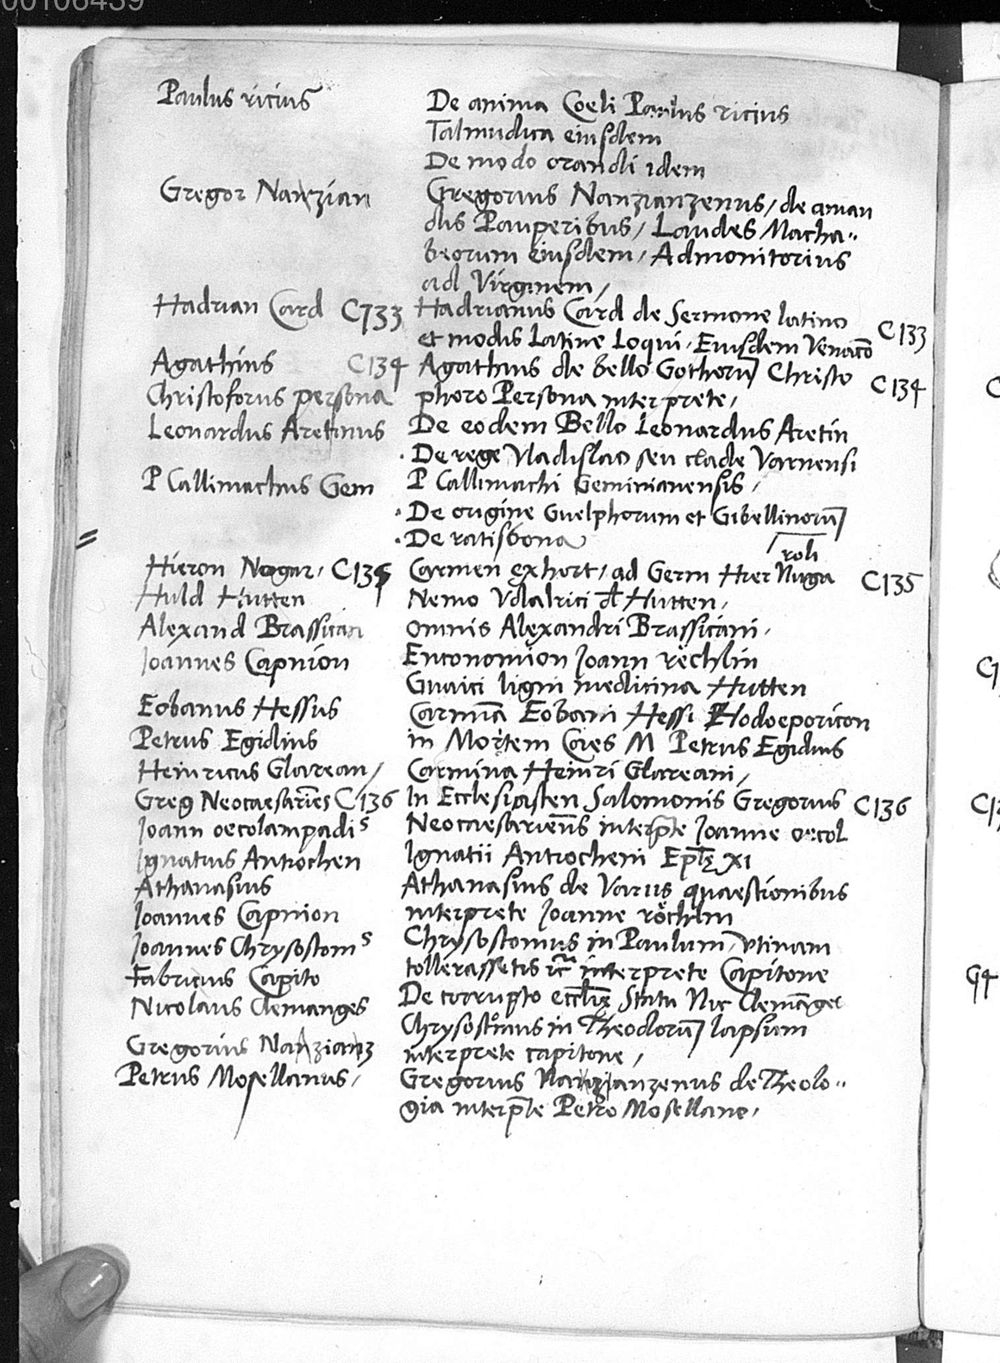 00106439
Paulus ricius De anima Coeli Paulus ricius
Talmudica eiusdem
De modo orandi idem
Gregor Nanzian Gregorius Nanzianzenus, de aman
dis Pauperibus, Laudes Macha-
beorum eiusdem, Admonitorius
ad Virginem,
Hadrian Card C133 Hadrianus Card de Sermone latino C133
et modis Latine Loqui. Eiusdem Venaco
Agathius C134 Agathius de bello Gothorum Christo C134
Christoforus persona phoro Persona interprete,
Leonardus Aretinus De eodem Bello Leonardus Aretin
. De rege Vladislao seu clade Varnensi
P Callimachus Gem P Callimachi Geminianensis,
. De origine Guelphorum et Gibellinorum
. De ratisbona
roli
Hieron Nogar, C135 Carmen exhort, ad Germ Hier Nuga C135
Huld Hutten Nemo Vdalrici d Hutten,
Alexand Brassican Omnis Alexandri Brassicani,
Joannes Capnion Enconomion Joann rechlin
Guaici ligni medicina Hutten
Eobanus Hessus Carmina Eobani Hessi Hodoeporicon
Petrus Egidius in Mortem Caes M Petrus Egidius
Heinricus Glarean, Carmina Heinri Glareani,
Greg Neocaesaries C136 In Ecclesiasten Salomonis Gregorius C136
Joann oecolampadis Neocaesariensis interpte Joanne oecol
Ignatius Antiochen Ignatii Antiocheni Eple XI
Athanasius Athanasius de Variis quaestionibus
Joannes Capnion interprete Joanne röchlin
Joannes Chrysostoms Chrysostomus in Paulum, Vtinam
Fabricius Capito tollerassetis interprete Capitone
Nicolaus Clemanges De corrupto eccliae Statu Nic Clemanges
Chrysostomus in Theodorum lapsum
Gregorius Nanzianz interprete capitone,
Petrus Mosellanus, Gregorius Nanzianzenus de Theolo-
gia interpte Petro Mosellano,